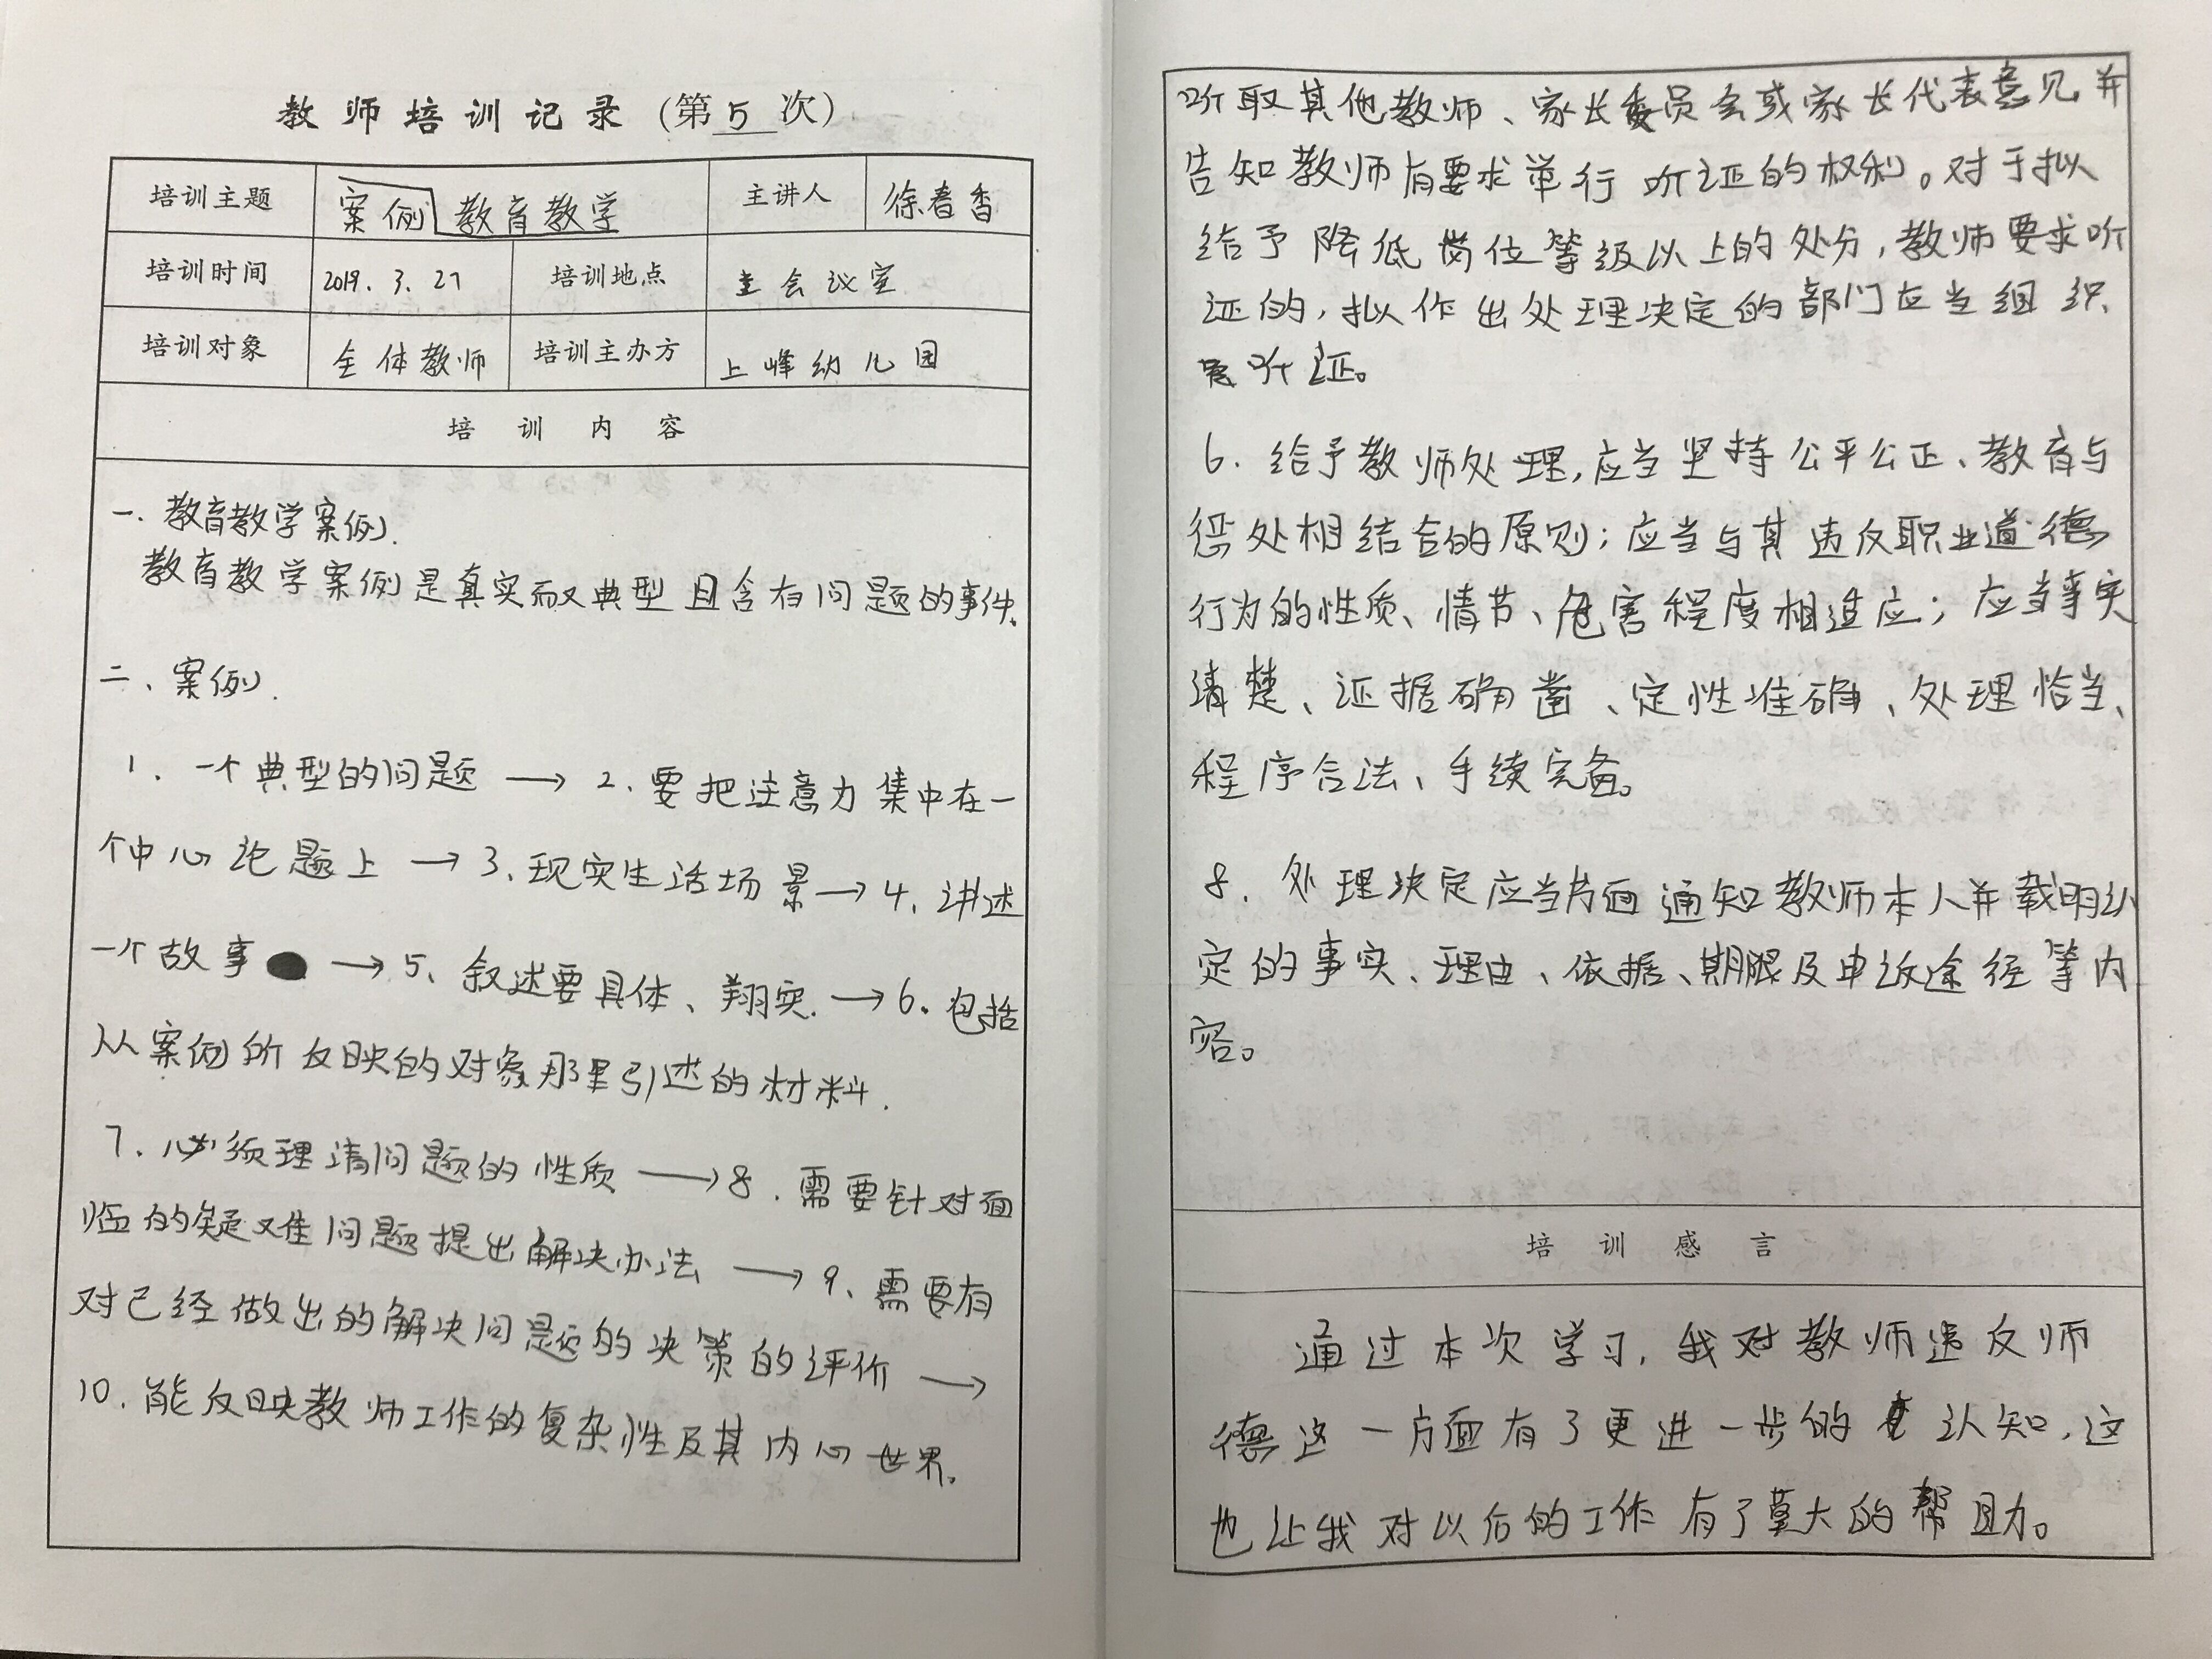 教师培训记录（第5次）
培训主题 案例教育教学 主讲人 徐春香
培训时间 2019.3.27 培训地点 主会议室
培训对象 全体教师 培训主办方 上峰幼儿园
培训内容
一.教育教学案例.
教育教学案例是真实而又典型且含有问题的事件.
二、案例.
1.一个典型的问题 → 2.要把注意力集中在一
个中心论题上 → 3.现实生活场景 → 4.讲述
一个故事 → 5、叙述要具体、翔实. → 6.包括
从案例所反映的对象那里引述的材料.
7.必须理清问题的性质 → 8.需要针对面
临的疑难问题提出解决办法 → 9、需要有
对已经做出的解决问题的决策的评价 →
10.能反映教师工作的复杂性及其内心世界.
听取其他教师、家长委员会或家长代表意见并
告知教师有要求举行听证的权利。对于拟
给予降低岗位等级以上的处分,教师要求听
证的,拟作出处理决定的部门应当组织
听证。
6.给予教师处理,应当坚持公平公正、教育与
惩处相结合的原则;应当与其违反职业道德
行为的性质、情节、危害程度相适应;应当事实
清楚、证据确凿、定性准确、处理恰当、
程序合法、手续完备。
8.处理决定应当书面通知教师本人并载明认
定的事实、理由、依据、期限及申诉途径等内
容。
培训感言
通过本次学习,我对教师违反师
德这一方面有了更进一步的认知,这
也让我对以后的工作有了莫大的帮助。